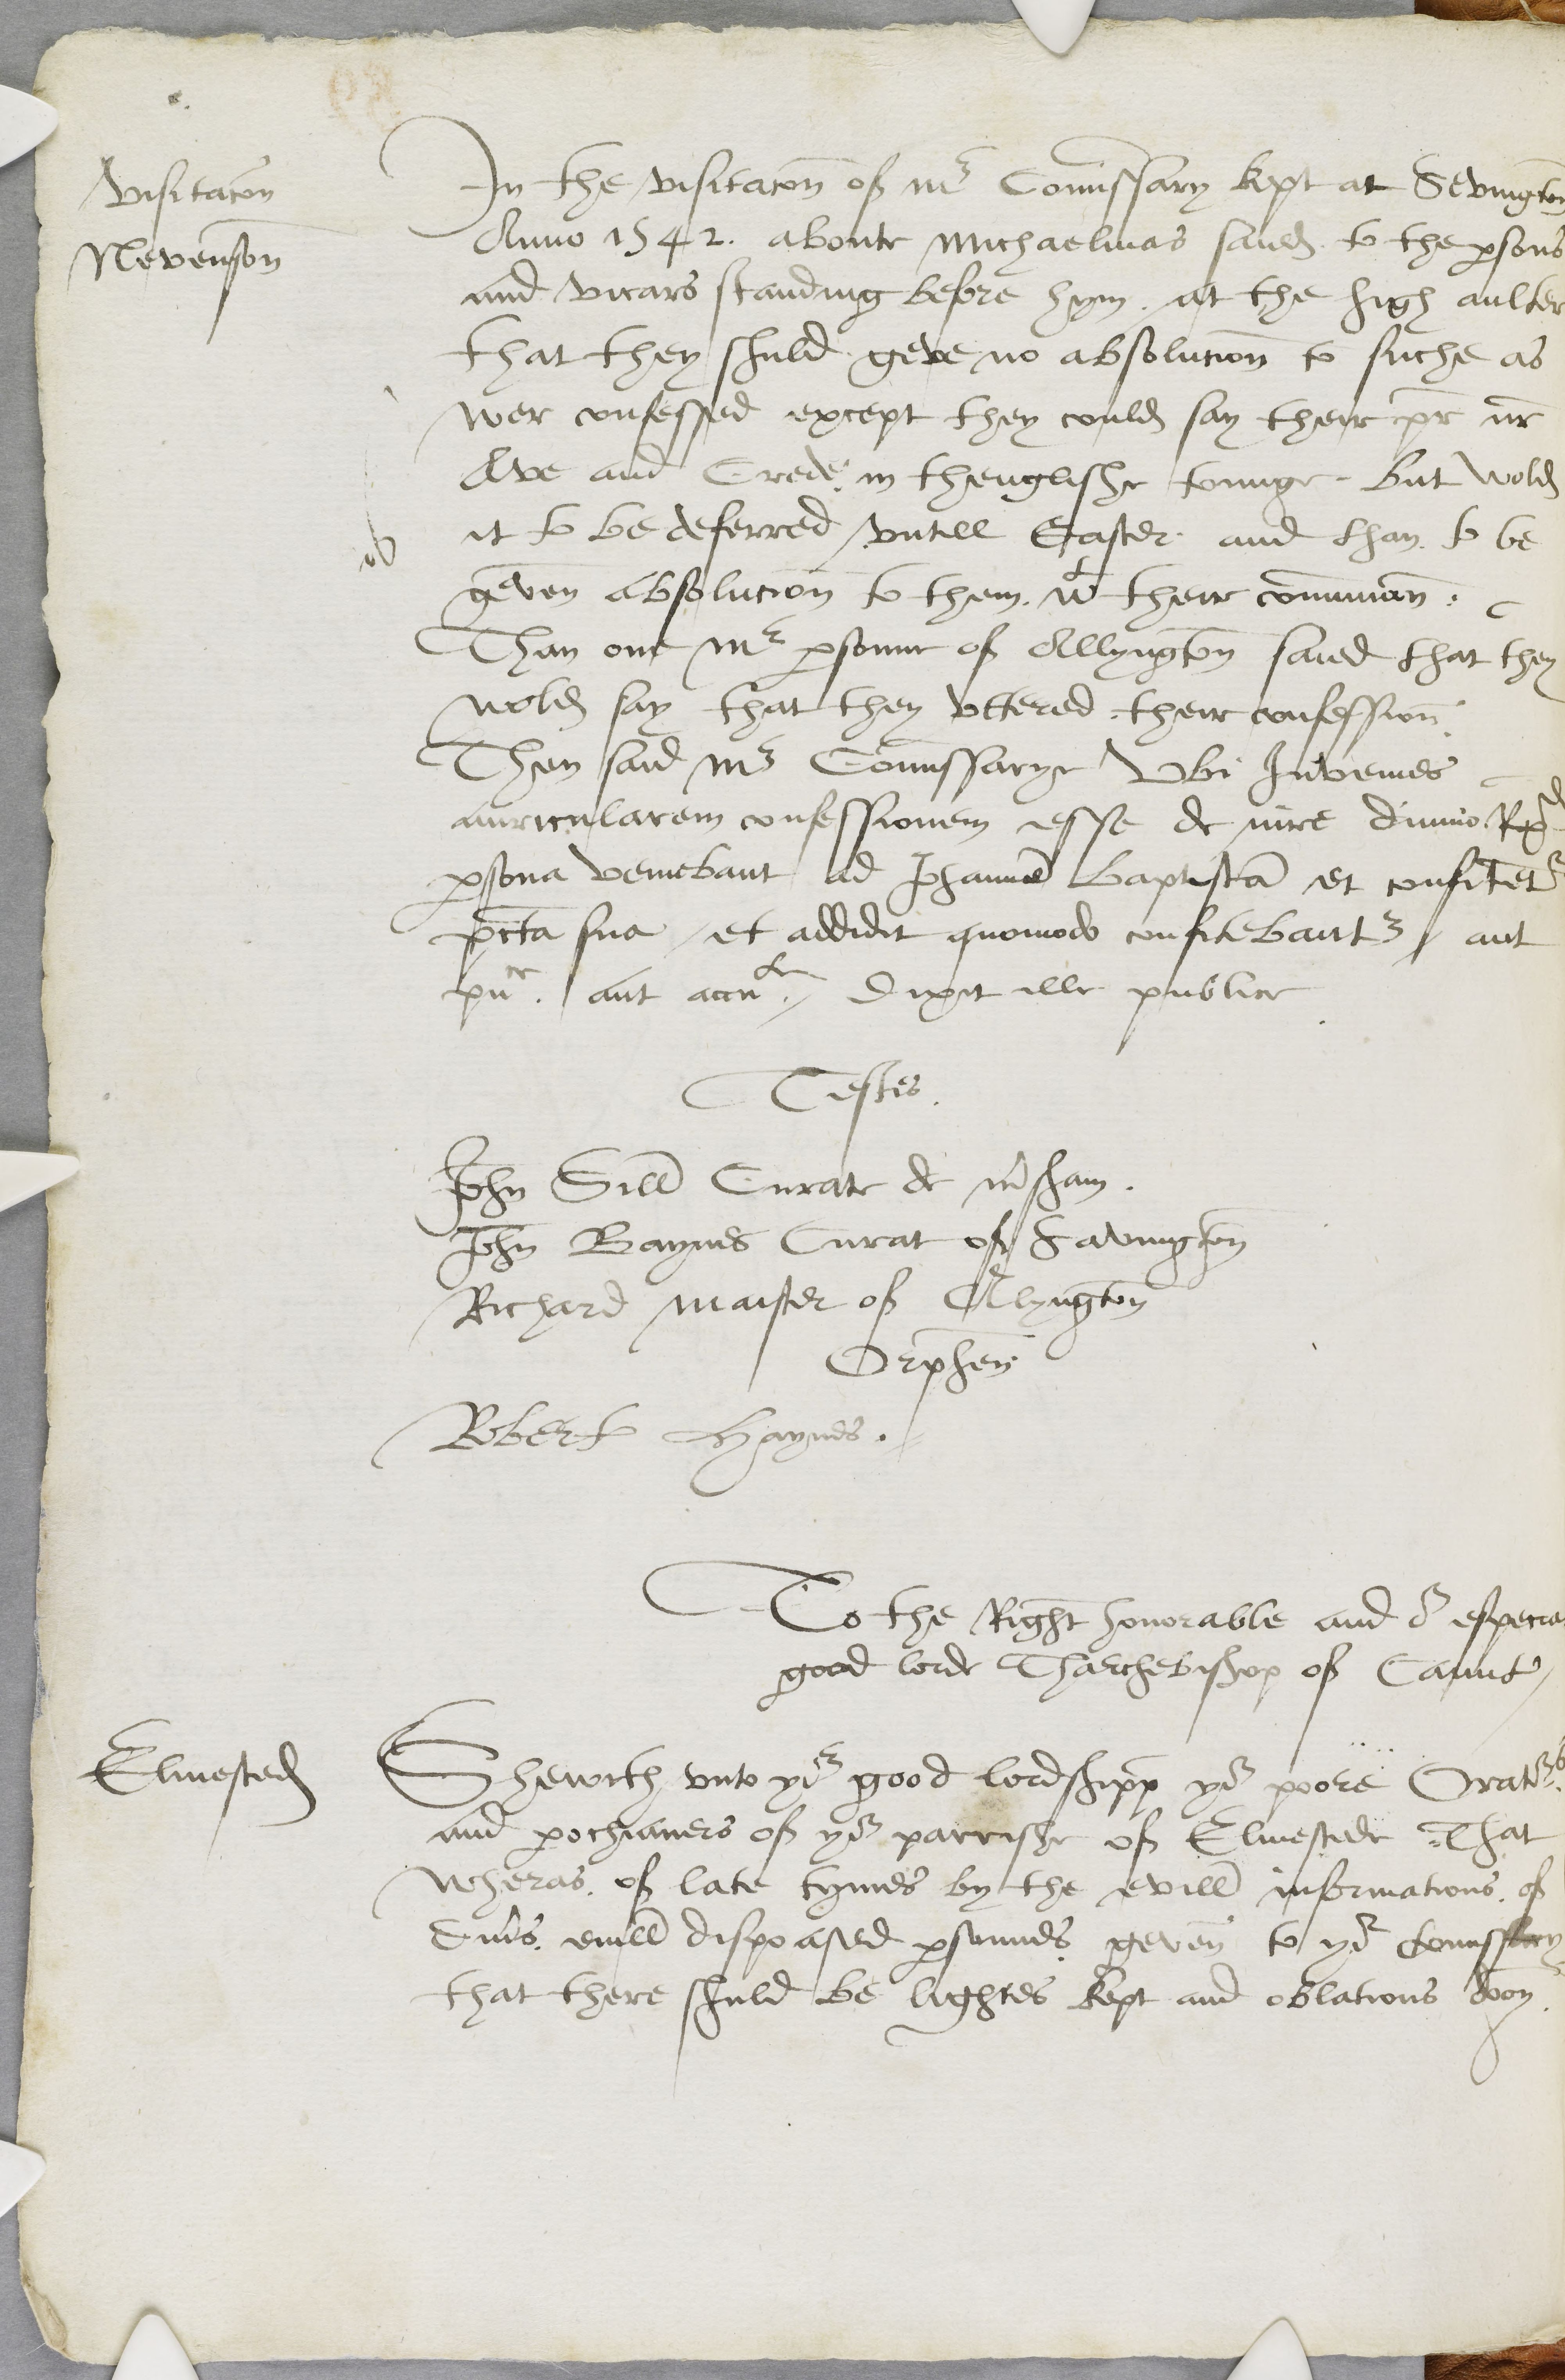 Visitacon
Nevenson
In the visitacon of mr Comissary kept at Sevington
Anno 1542. aboute Michaelmas saied to the psons
and vicars standing before hym at the high aulter
that they shuld geve no absolucion to suche as
wer confessed except they could say their pr nr
Ave and Crede in thenglishe tounge but wold
it to be deferred untill Easter and than to be
geven absolucion to them wt their comunion.
Than one mr psonne of Allyngton saied that they
wold say that they uttered their confession.
Then said mr Comissarye Ubi Invenies
auricularem confessionem esse de iure divino Rx
psona veniebant ad Johannem Baptistam et confitetr
pcta sua / et addidit quomodo confitebantr / aut
puce. aut accute / Dixit ille publice
Testes.
John Gill Curate de msham.
John Baynes Curat of Savington
Richard Maister of Allyngton
Orphen
Robert Haynes.
To the Right honorable and or especia
good lorde Tharchebishop of Caunt
Elmested
Sheweth unto yor good lordshipp yor poore Orators
and pochianers of yor parrishe of Elmestede That
wheras of late tymes by the evill informations of
evill disposed psonnes geven to yor Comissary
that there shuld be lightes kept and oblations doon